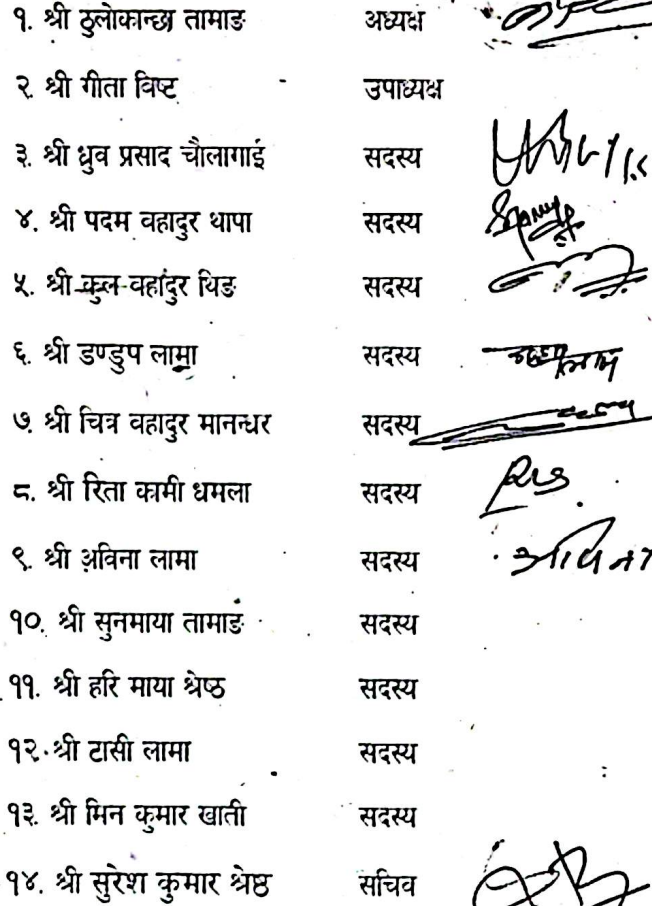 १. श्री ठुलोकान्छा तामाङ अध्यक्ष
२. श्री गीता विष्ट उपाध्यक्ष
३. श्री ध्रुव प्रसाद चौलागाई सदस्य
४. श्री पदम वहादुर थापा सदस्य
५. श्री कुल वहादुर थिङ सदस्य
६. श्री डण्डुप लामा सदस्य
७. श्री चित्र वहादुर मानन्धर सदस्य
८. श्री रिता कामी धमला सदस्य
९. श्री अविना लामा सदस्य अविना
१०. श्री सुनमाया तामाङ सदस्य
११. श्री हरि माया श्रेष्ठ सदस्य
१२. श्री टासी लामा सदस्य
१३. श्री मिन कुमार खाती सदस्य
१४. श्री सुरेश कुमार श्रेष्ठ सचिव